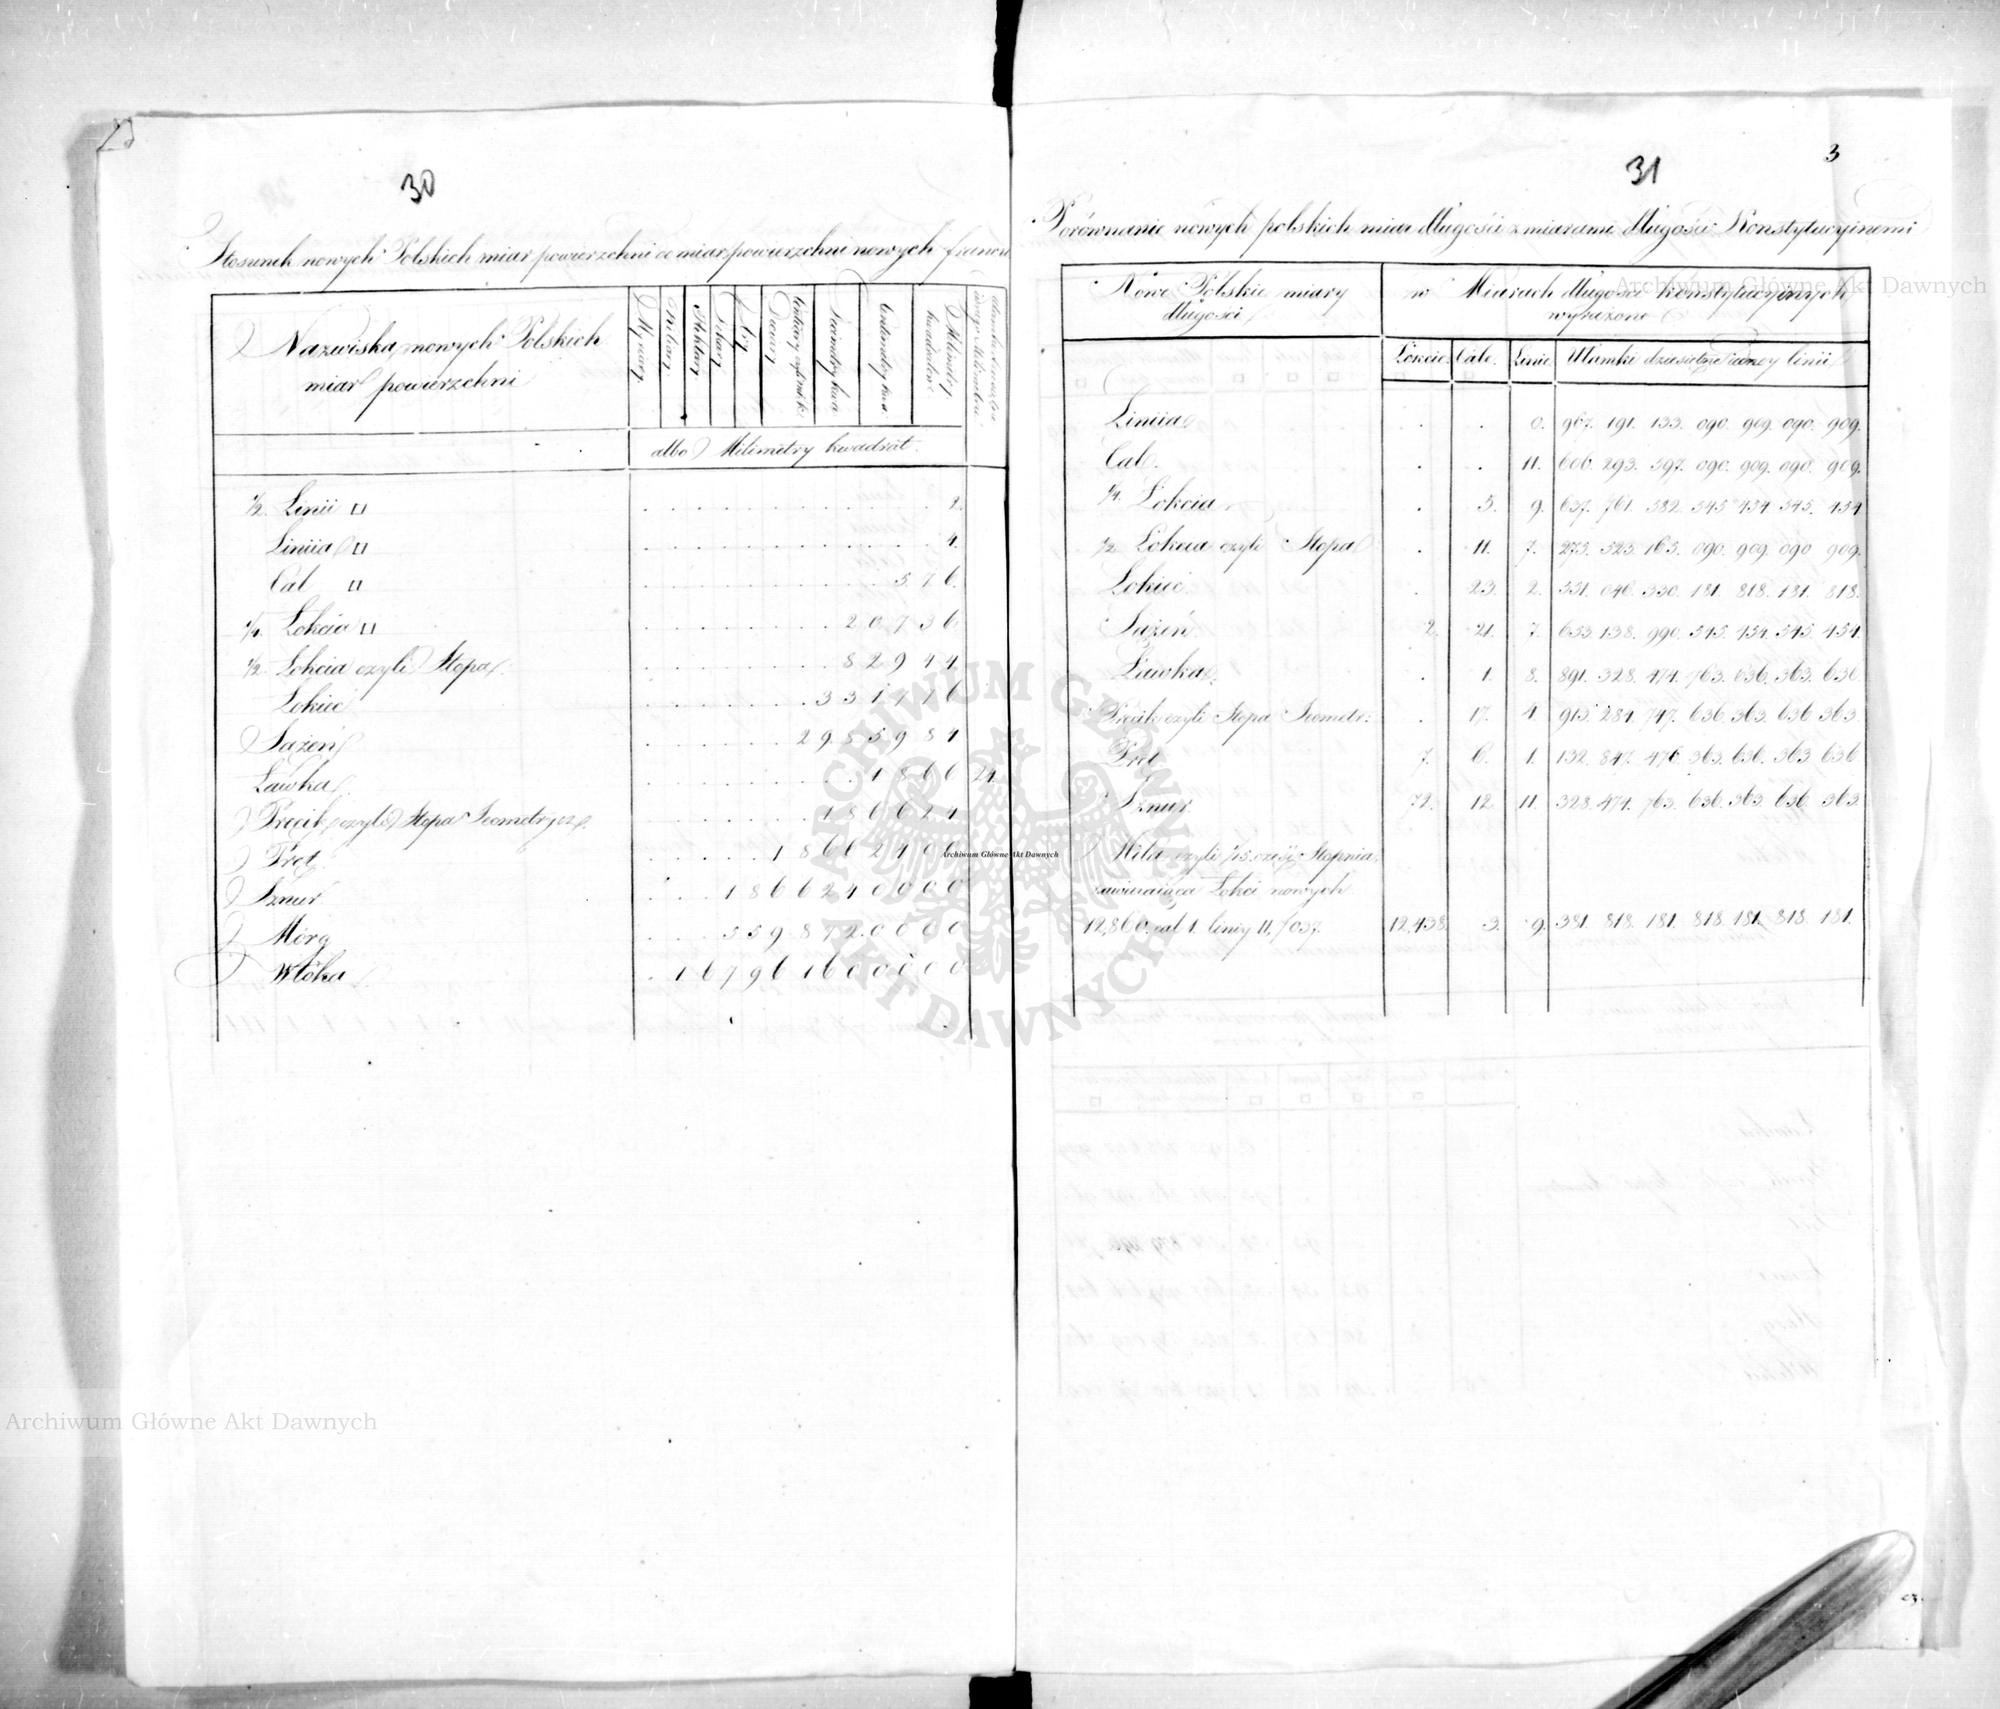 30
Stosunek nowych Polskich miar powierzchni do miar powierzchni nowych francu
Nazwiska nowych Polskich
miar powierzchni
Myriary.
Kiliary.
Hektary.
Dekary.
Ary
Deciary
Centiary czyli met. k.
Decimetry kwa
Centimetry kwa.
Milimetry
kwadratow.
albo Milimetry kwadrat.
1/2. Linii □ 2.
Liniia □ 4.
Cal □ 576.
1/4. Łokcia □ 20736.
1/2. Łokcia czyli Stopa. 82944
Łokieć 331776
Sążeń 2985984
Ławka. 1866 24
Pręcik czyli Stopa Geometrycz. 186624
Pręt. 18662400
Sznur 1866240000
Mórg 559872.0000
Włóka 167961600000
31
3
Porównanie nowych polskich miar długości z miarami długości Konstytucyinemi
Nowe Polskie miary
długości
w Miarach długości konstytucyinych
wyrażone
Łokcie. Cale. Linie Ułamki dziesiętne iedney linii
Liniia . . 0. 967. 191. 133. 090. 909. 090. 909.
Cal. . . 11. 606. 293. 597. 090. 909. 090. 909.
1/4. Łokcia . 5. 9. 637. 761. 582. 545. 454. 545. 454
1/2 Łokcia czyli Stopa . 11. 7. 275. 523. 165. 090. 909. 090 909.
Łokieć . 23. 2. 551. 046. 330. 181. 818. 181. 818.
Sążeń 2. 21. 7. 653 138. 990. 545. 454. 545. 454.
Ławka. . 1. 8. 891. 328. 474. 763. 636. 363. 636
Pręcik czyli Stopa Geometr: . 17. 4. 913. 284. 747. 636. 363. 636 363.
Pręt 7. 6. 1. 132. 847. 476. 363. 636. 363 636
Sznur 72. 12. 11. 328. 474. 763. 636. 363. 636. 363.
Mila, czyli 1/15. część Stopnia,
zawieraiąca Łokci nowych
12,860. cal 1. liniy 11,/037. 12,438. 3. 9. 381. 818. 181. 818. 181. 818. 181.
Archiwum Główne Akt Dawnych
Archiwum Główne Akt Dawnych
Archiwum Główne Akt Dawnych
ARCHIWUM GŁÓWNE AKT DAWNYCH